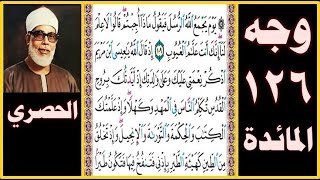 وجه
١٢٦
المائدة
يَوْمَ يَجْمَعُ ٱللَّهُ ٱلرُّسُلَ فَيَقُولُ مَاذَآ أُجِبْتُمْ قَالُوا۟ لَا عِلْمَ
لَنَآ إِنَّكَ أَنتَ عَلَّٰمُ ٱلْغُيُوبِ إِذْ قَالَ ٱللَّهُ يَٰعِيسَى ٱبْنَ مَرْيَمَ
ٱذْكُرْ نِعْمَتِى عَلَيْكَ وَعَلَىٰ وَٰلِدَتِكَ إِذْ أَيَّدتُّكَ بِرُوحِ
ٱلْقُدُسِ تُكَلِّمُ ٱلنَّاسَ فِى ٱلْمَهْدِ وَكَهْلًا وَإِذْ عَلَّمْتُكَ
ٱلْكِتَٰبَ وَٱلْحِكْمَةَ وَٱلتَّوْرَىٰةَ وَٱلْإِنجِيلَ وَإِذْ تَخْلُقُ
مِنَ ٱلطِّينِ كَهَيْـَٔةِ ٱلطَّيْرِ بِإِذْنِى فَتَنفُخُ فِيهَا فَتَكُونُ طَيْرًۢا
الحصري